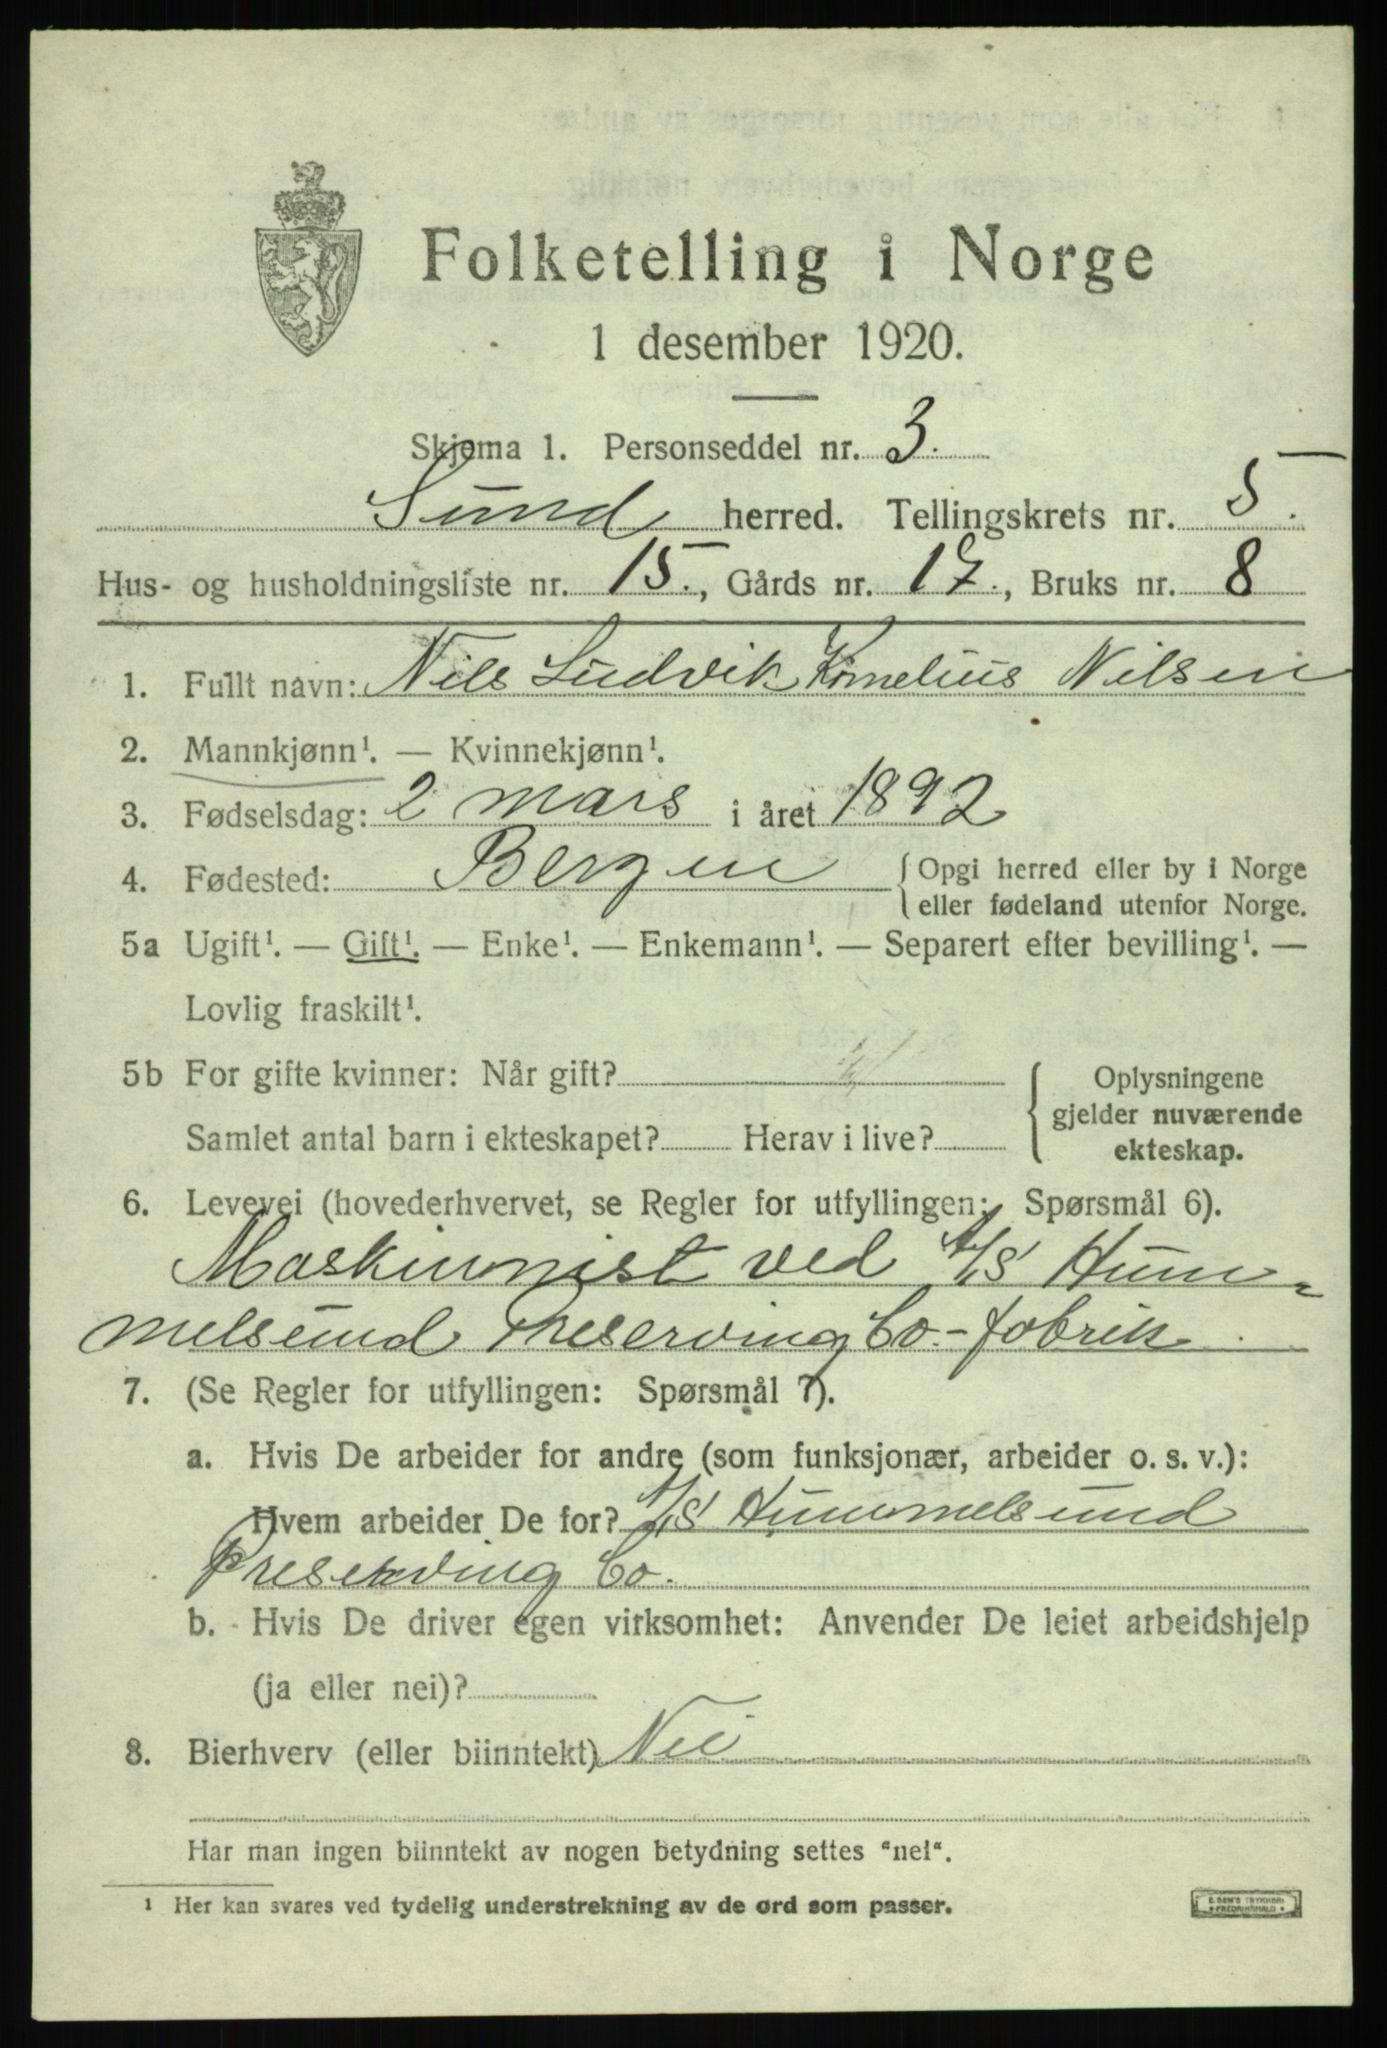 Folketelling i Norge
1 desember 1920.
Skjema 1. Personseddel nr. 3.
Sund herred. Tellingskrets nr. 5.
Hus- og husholdningsliste nr. 15., Gårds nr. 17., Bruks nr. 8
1. Fullt navn: Nils Ludvik Kornelius Nilsen
2. Mannkjønn¹. — Kvinnekjønn¹.
3. Fødselsdag: 2 mars i året 1892
4. Fødested: Bergen { Opgi herred eller by i Norge
eller fødeland utenfor Norge.
5a Ugift¹. — Gift¹. — Enke¹. — Enkemann¹. — Separert efter bevilling¹. —
Lovlig fraskilt¹.
5b For gifte kvinner: Når gift? { Oplysningene
gjelder nuværende
Samlet antal barn i ekteskapet? Herav i live? ekteskap.
6. Levevei (hovederhvervet, se Regler for utfyllingen; Spørsmål 6).
Maskinnist ved A/S Hum-
melsund Preserving Co.-fabrik
7. (Se Regler for utfyllingen: Spørsmål 7).
a. Hvis De arbeider for andre (som funksjonær, arbeider o. s. v.):
Hvem arbeider De for? A/S Hummelsund
Preserving Co.
b. Hvis De driver egen virksomhet: Anvender De leiet arbeidshjelp
(ja eller nei)?
8. Bierhverv (eller biinntekt) Nei
Har man ingen biinntekt av nogen betydning settes "nei".
¹ Her kan svares ved tydelig understrekning av de ord som passer.